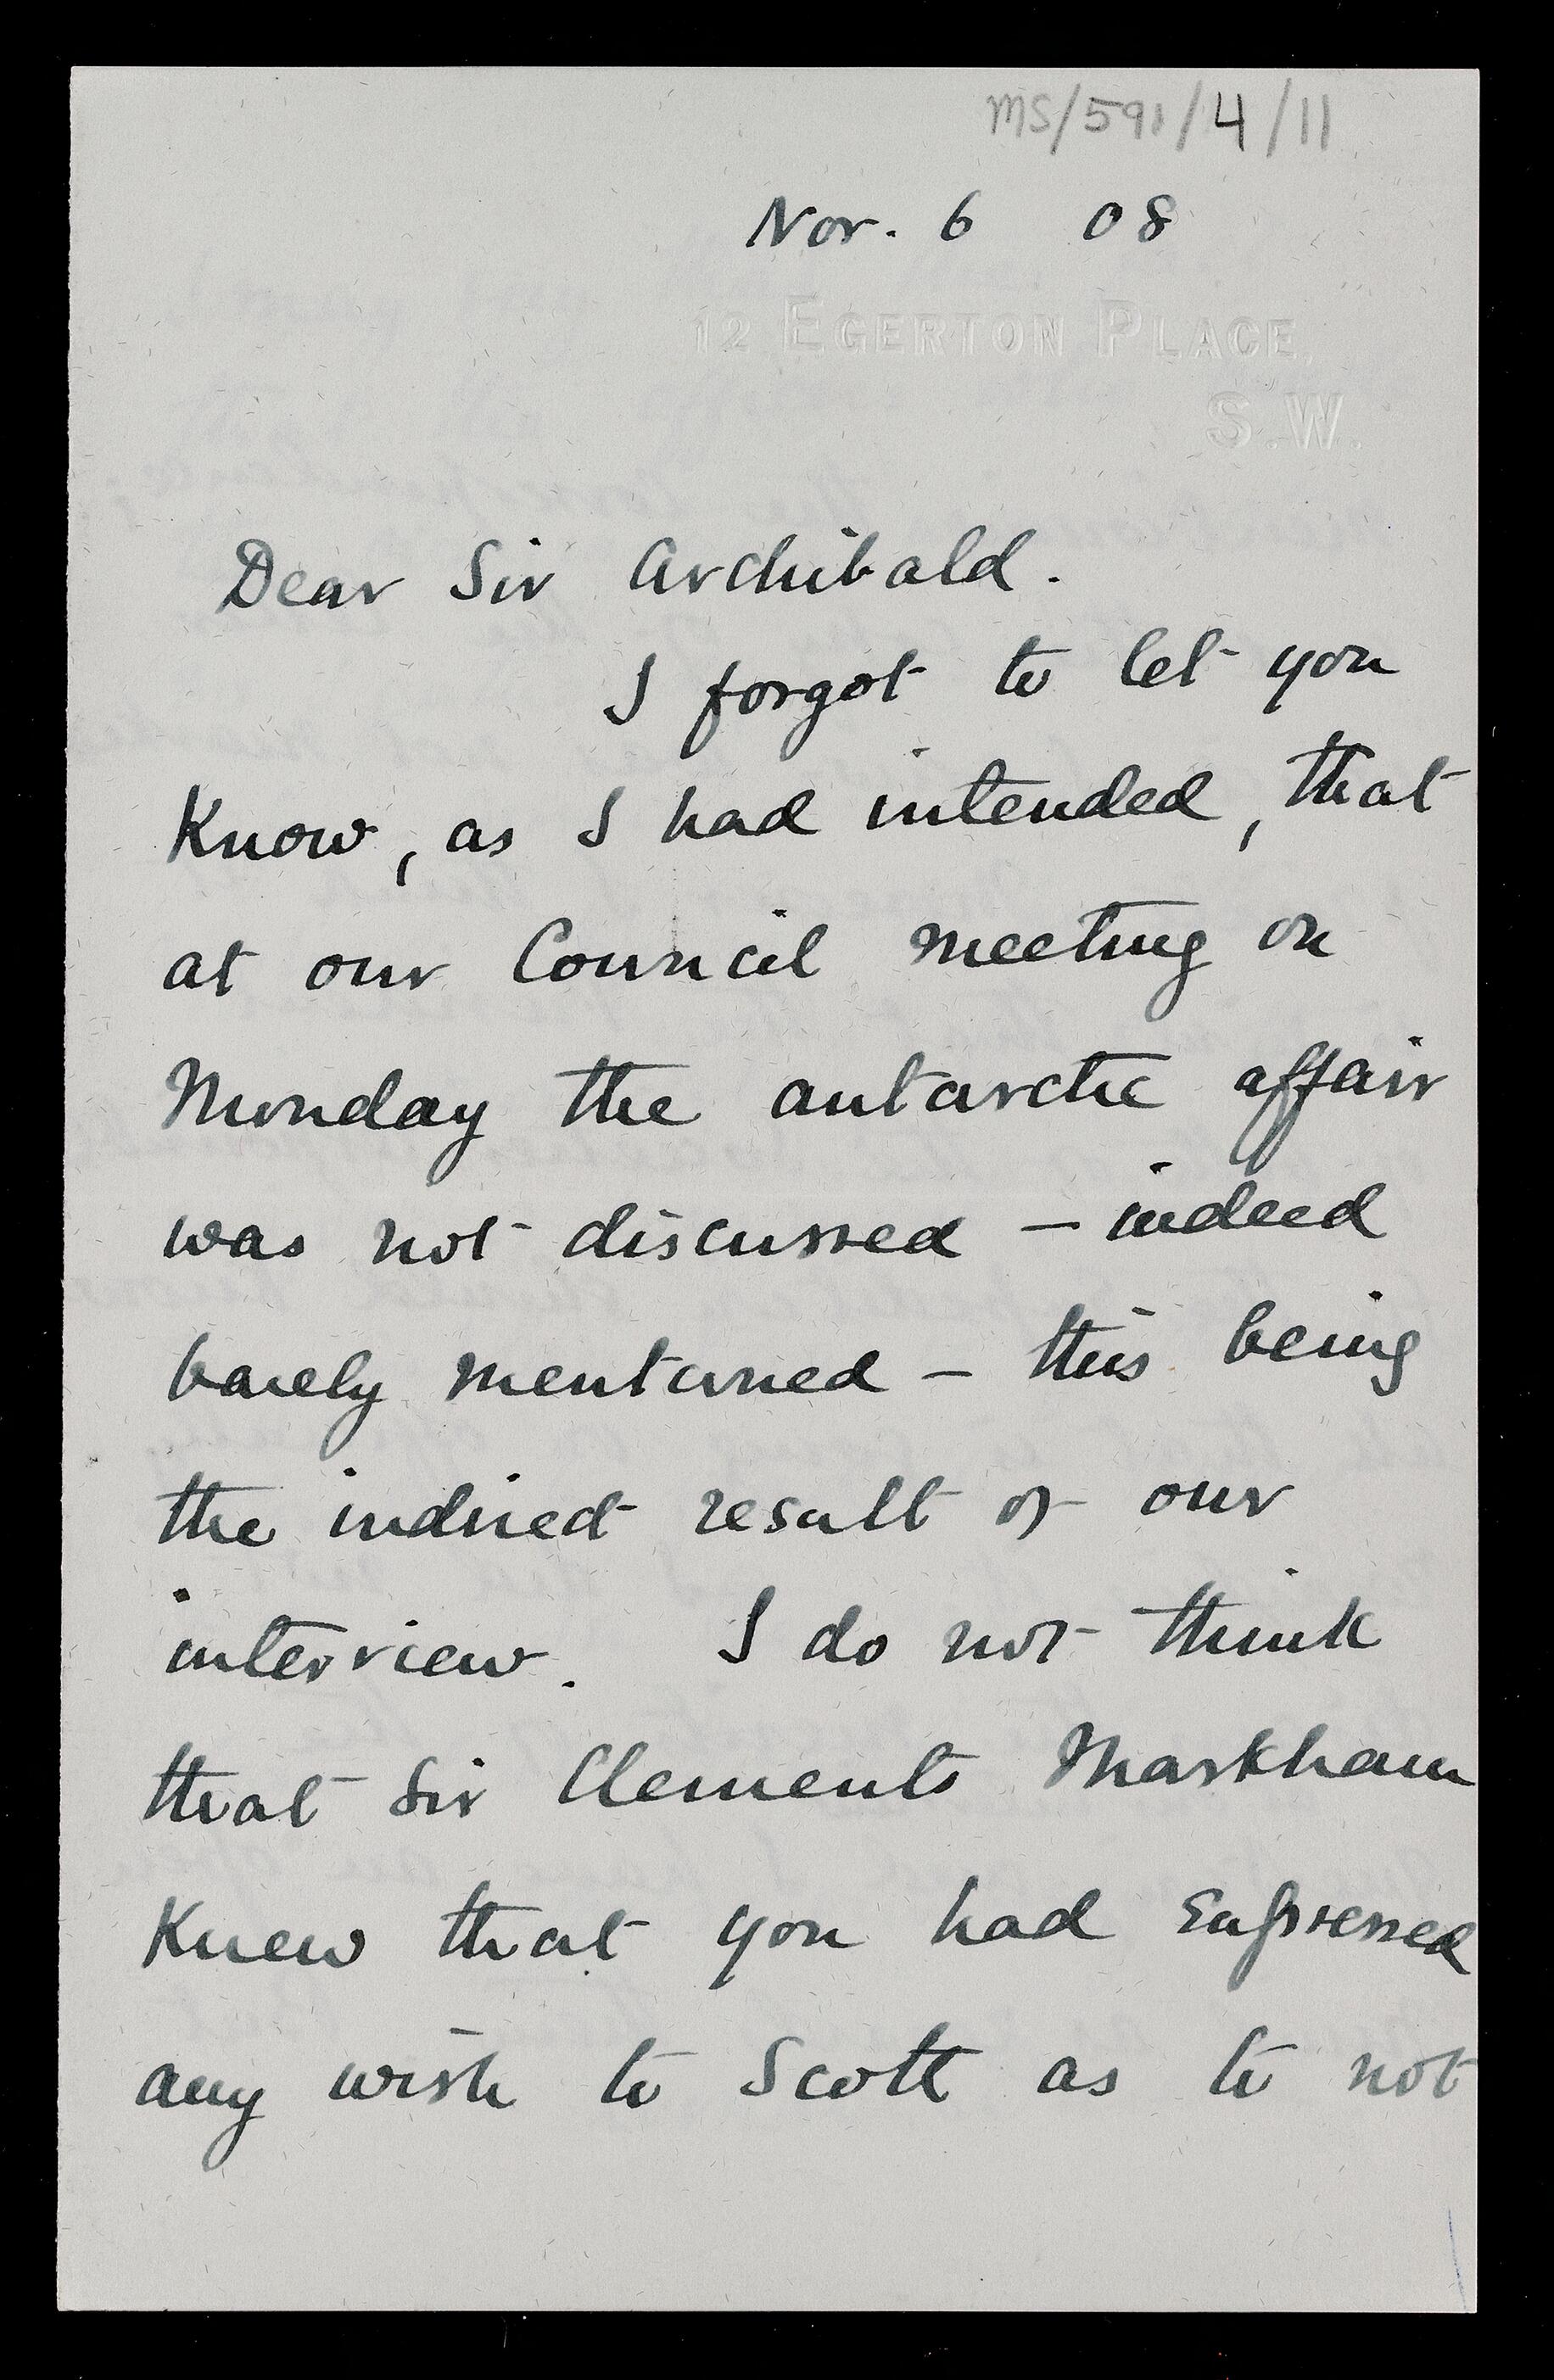 MS/591/4/11
Nov. 6 08
12 EGERTON PLACE,
S.W.
Dear Sir Archibald.
I forgot to let you
Know, as I had intended, that
at our Council meeting on
Monday the antarctic affair
was not discussed – indeed
barely mentioned – this being
the indirect result of our
interview. I do not think
that Sir Clements Markham
Knew that you had expressed
any wish to Scott as to not